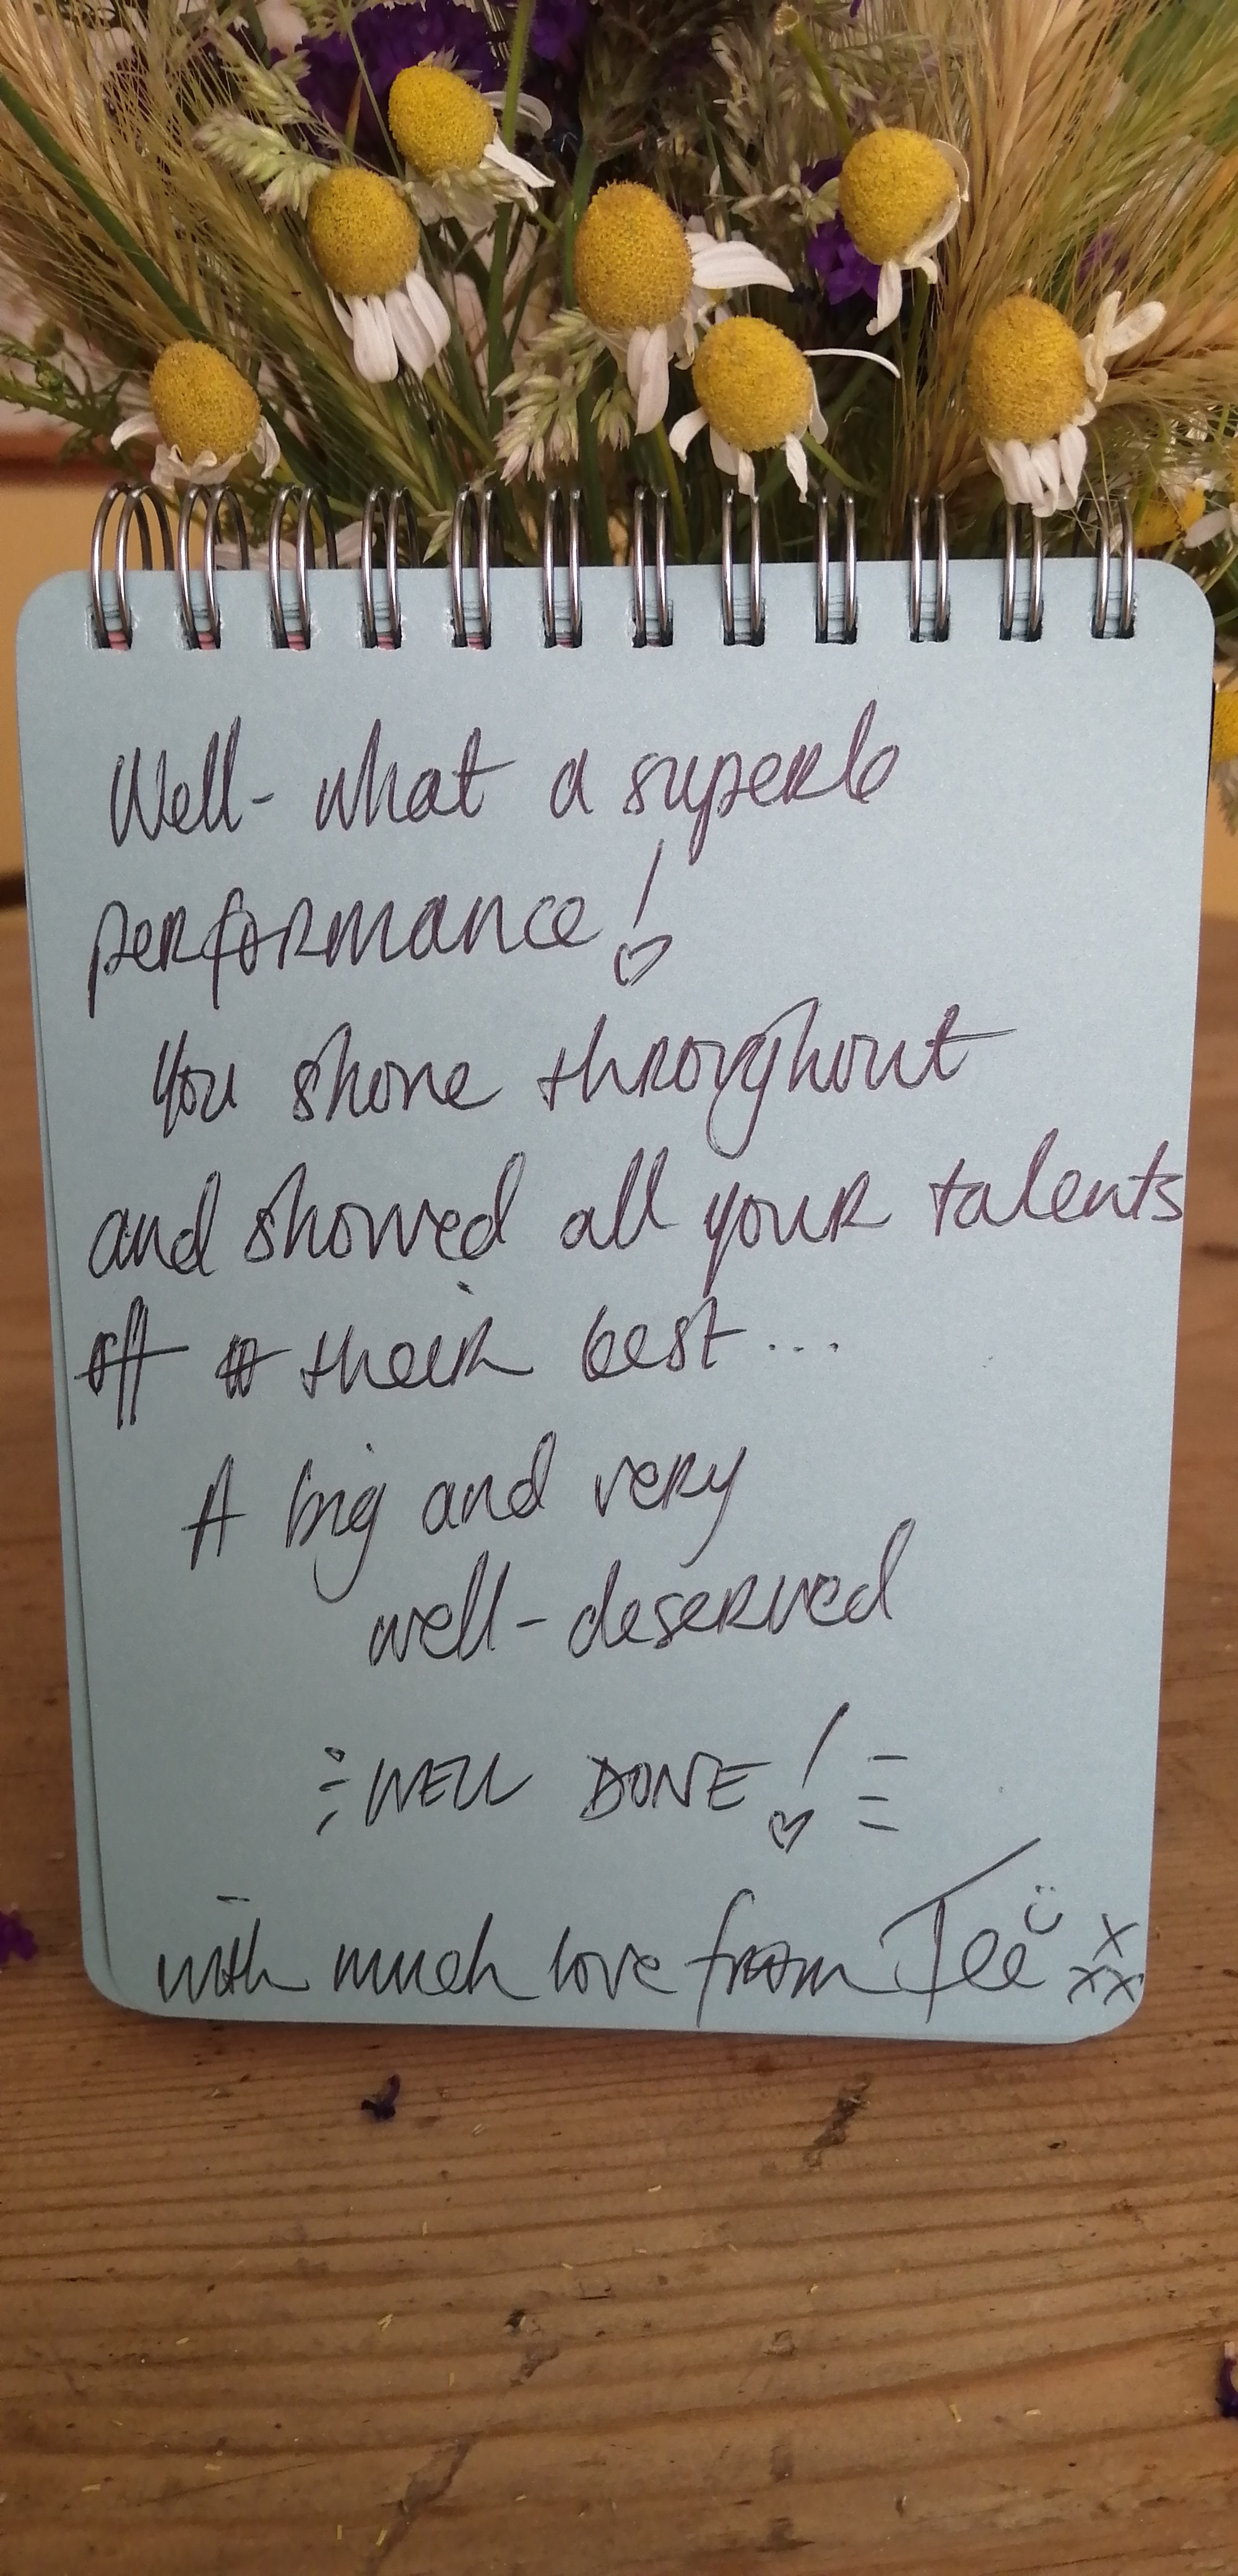 Well- what a superb
performance!
You shone throughout
and showed all your talents
off to their best...
A big and very
well-deserved
WELL DONE!
with much love from Tee xxx